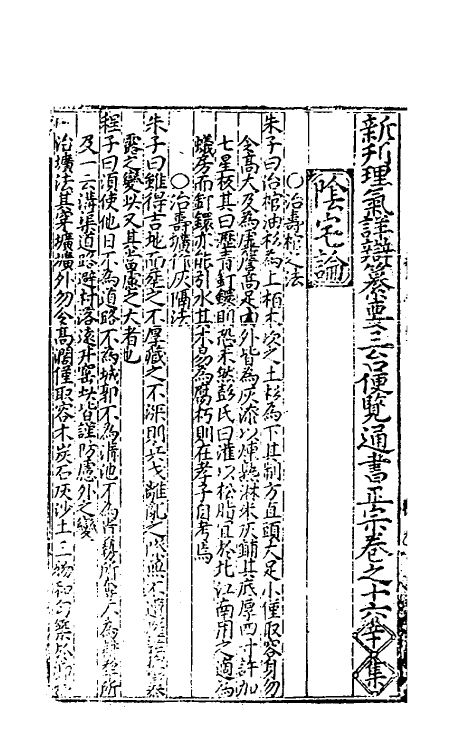 新刋理氣詳辯纂要三台便覽通書正宗卷之十六 集
陰宅論
○治壽棺之法
朱子曰治棺油杉為上栢木次之土杉為下其制方直頭大足小僅取容身勿
令高大及為虛簷高足內外皆為灰漆以煉熟淋米灰鋪其底厚四寸許加
七星板其曰瀝青釘鐶則恐未然彭氏曰灌以松脂宜於北江南用之適為
蟻房而釘鐶亦能引水其木易為腐朽則在孝子自考焉
○治壽壙作灰隔法
朱子曰雖得吉地而葬之不厚藏之不深則兵戈離亂之際無不遭 發掘暴
露之變此又其當慮之大者也
程子曰須使他日不為道路不為城郭不為溝池不為貴勢所奪不為耕犁所
及一云溝渠道路避村落遠井窑此皆謹防慮外之變
治壙法其穿壙壙外勿令高濶僅取容木炭石灰沙土三物和勻築於